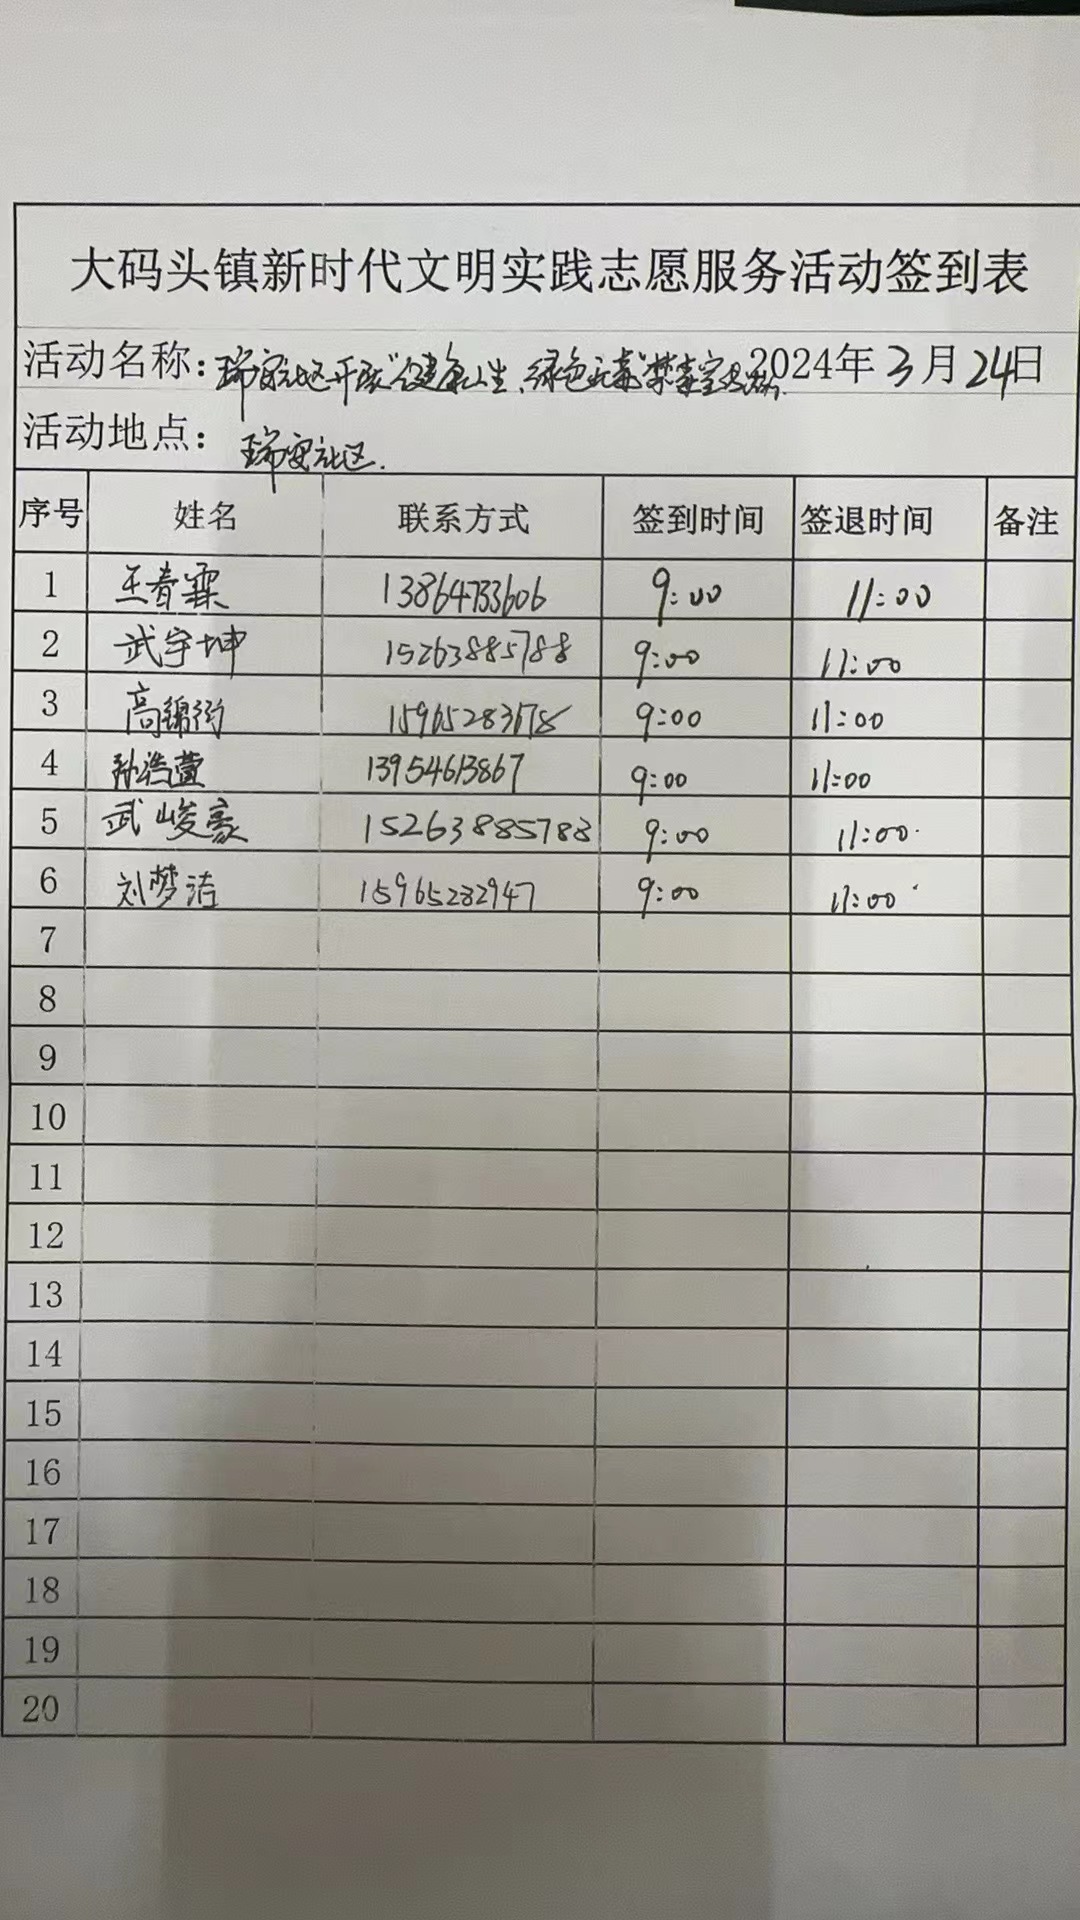 大码头镇新时代文明实践志愿服务活动签到表
活动名称：瑞安社区开展“健康人生、绿色无毒”禁毒宣 2024年3月24日
活动地点： 瑞安社区.
序号 姓名 联系方式 签到时间 签退时间 备注
1 王春霖 13864733606 9:00 11:00
2 武宇坤 15263885788 9:00 11:00
3 高锦 9:00 11:00
4 孙浩萱 13954613867 9:00 11:00
5 武峻豪 15263885788 9:00 11:00
6 刘梦洁 15965282947 9:00 11:00
7
8
9
10
11
12
13
14
15
16
17
18
19
20